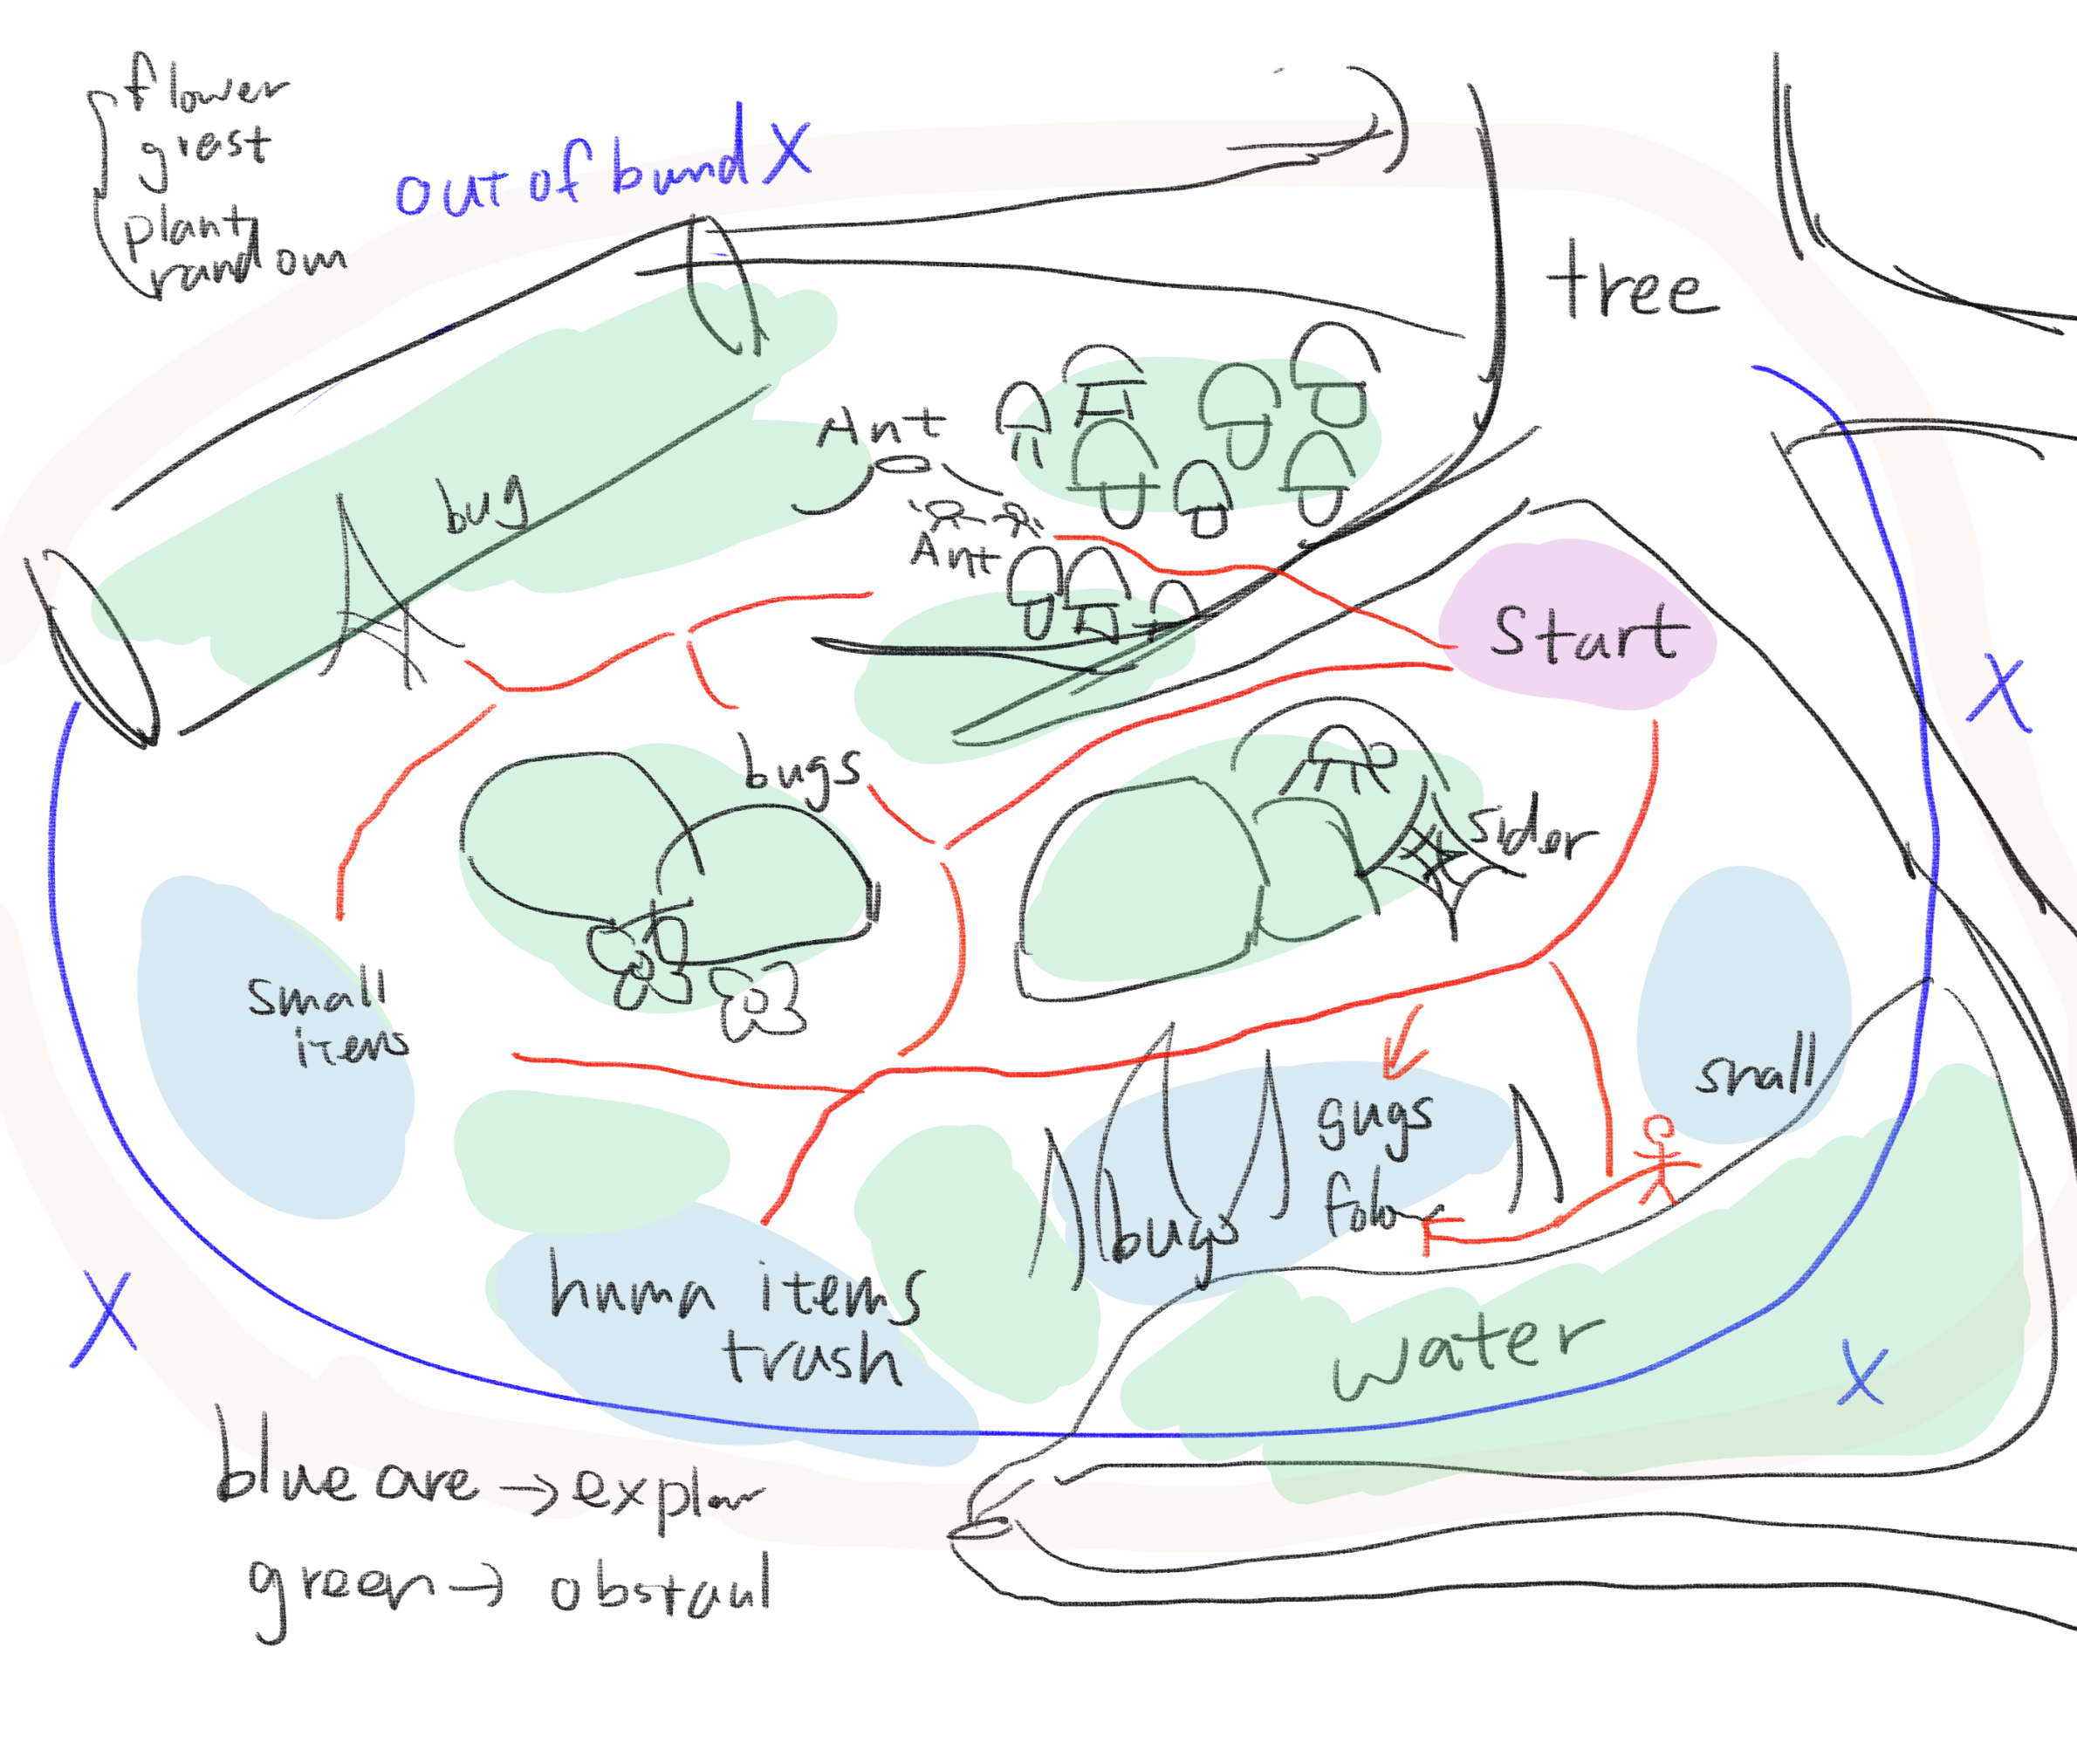 flower
grast
plant
random
out of bund X
tree
Ant
bug
Ant
Start
X
bugs
sider
small
items
small
gugs
folo
bugs
huma items
trash
water
X
X
blue are → explor
green → obstaul